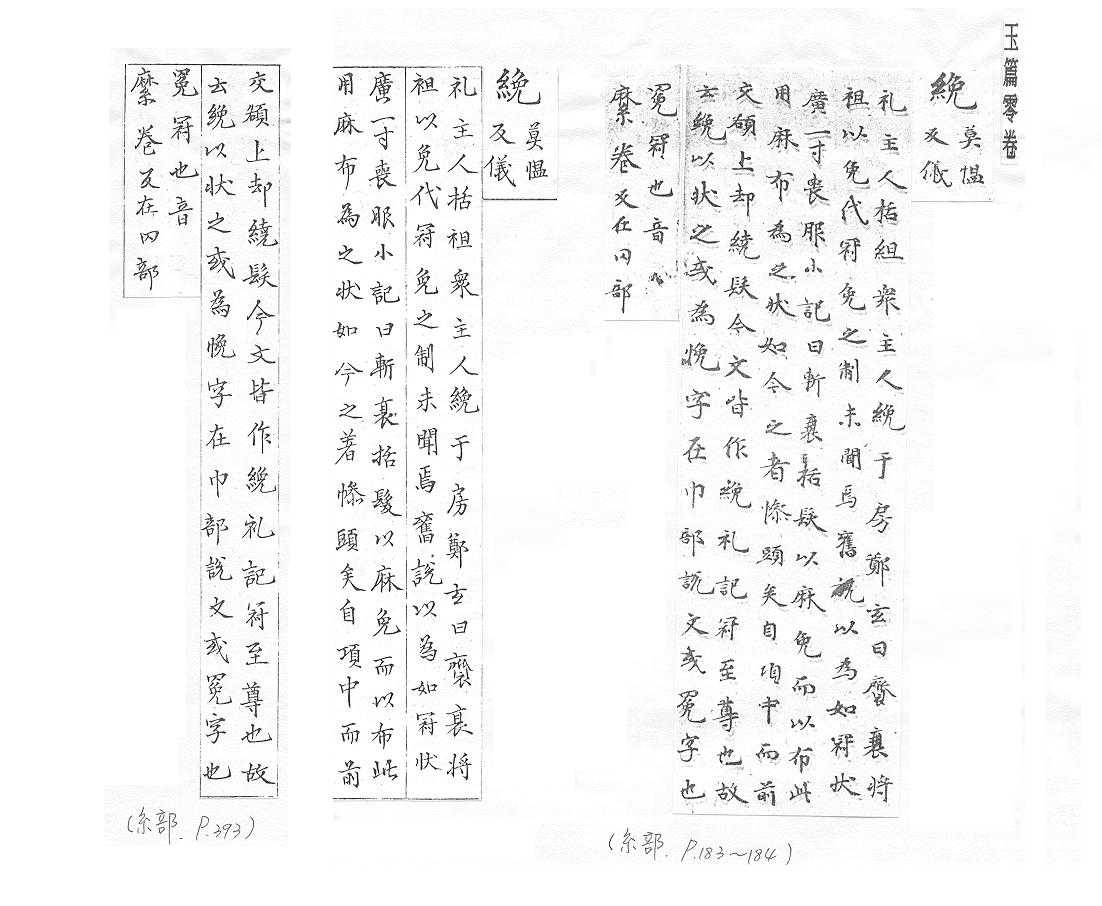 玉篇零卷
絻
莫愠
反儀
礼主人括袒衆主人絻于房鄭玄曰齊衰將
袒以免代冠免之制未聞焉舊説以為如冠状
廣一寸喪服小記曰斬衰括髮以麻免而以布此
用麻布為之状如今之著幓頭矣自項中而前
交額上却繞髮今文皆作絻礼記冠至尊也故
云絻以状之或為㡈字在巾部説文或冕字也
冕冠也音
縻卷反在冃部
(糸部、P.183～184)
絻
莫愠
反儀
礼主人括袒衆主人絻于房鄭玄曰齊衰将
袒以免代冠免之制未聞焉舊説以為如冠状
廣一寸喪服小記曰斬衰括髮以麻免而以布此
用麻布為之状如今之著幓頭矣自項中而前
交額上却繞髮今文皆作絻礼記冠至尊也故
云絻以状之或為㡈字在巾部説文或冕字也
冕冠也音
縻卷反在冃部
(糸部、P.393)